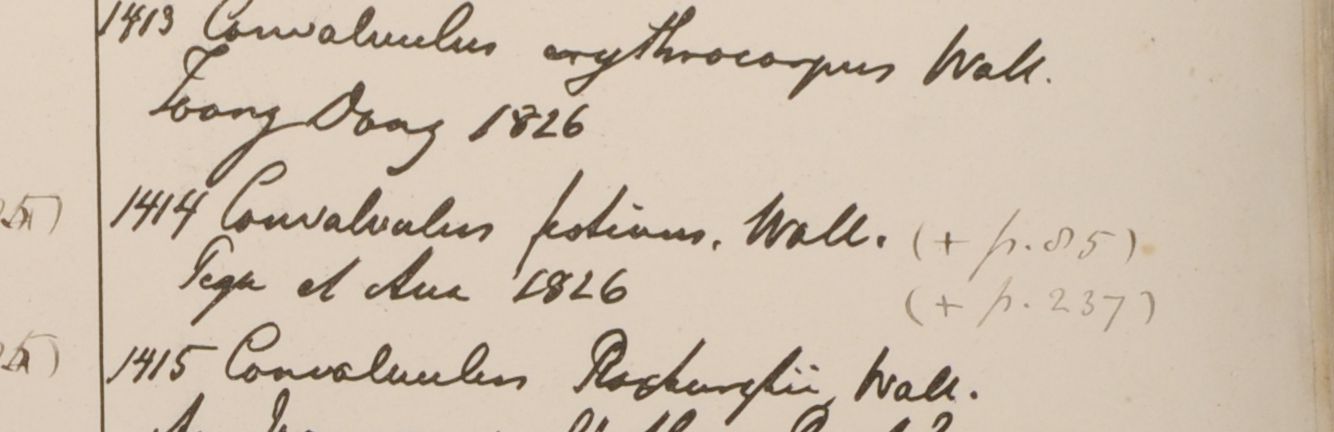 1413 Convolvulus erythrocarpus Wall.
Toong Dong 1826
1414 Convolvulus Wall. (+ p. 85)
Pegu et Ava 1826 (+ p. 237)
1415 Convolvulus Roxburghii Wall.